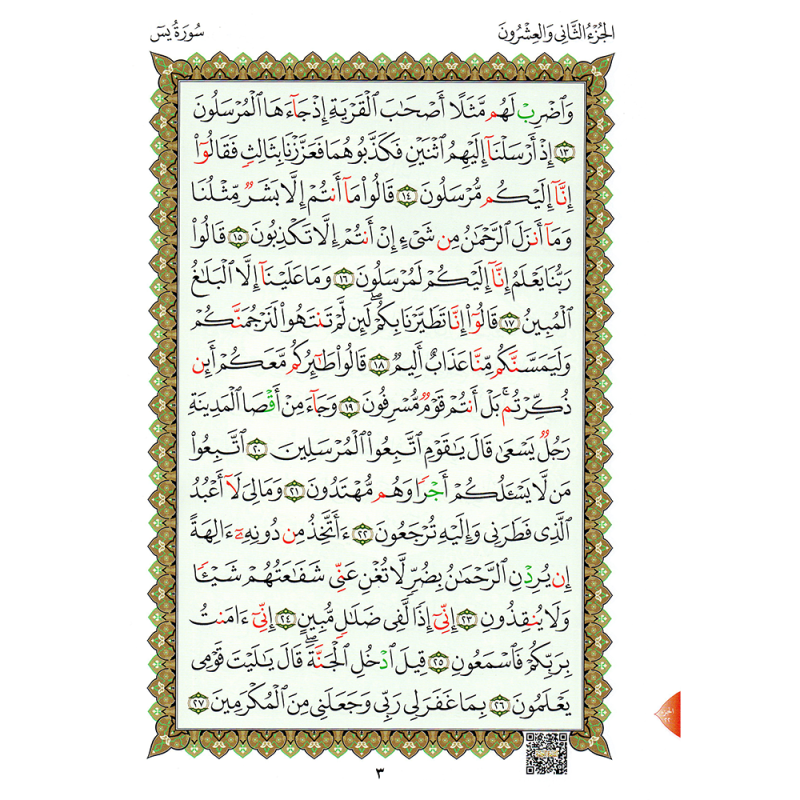 الجُزْءُ الثَّانِي وَالعِشْرُونَ
سُورَةُ يسٓ
وَٱضْرِبْ لَهُم مَّثَلًا أَصْحَٰبَ ٱلْقَرْيَةِ إِذْ جَآءَهَا ٱلْمُرْسَلُونَ
١٣ إِذْ أَرْسَلْنَآ إِلَيْهِمُ ٱثْنَيْنِ فَكَذَّبُوهُمَا فَعَزَّزْنَا بِثَالِثٍ فَقَالُوٓا۟
إِنَّآ إِلَيْكُم مُّرْسَلُونَ ١٤ قَالُوا۟ مَآ أَنتُمْ إِلَّا بَشَرٌ مِّثْلُنَا
وَمَآ أَنزَلَ ٱلرَّحْمَٰنُ مِن شَىْءٍ إِنْ أَنتُمْ إِلَّا تَكْذِبُونَ ١٥ قَالُوا۟
رَبُّنَا يَعْلَمُ إِنَّآ إِلَيْكُمْ لَمُرْسَلُونَ ١٦ وَمَا عَلَيْنَآ إِلَّا ٱلْبَلَٰغُ
ٱلْمُبِينُ ١٧ قَالُوٓا۟ إِنَّا تَطَيَّرْنَا بِكُمْ ۖ لَئِن لَّمْ تَنتَهُوا۟ لَنَرْجُمَنَّكُمْ
وَلَيَمَسَّنَّكُم مِّنَّا عَذَابٌ أَلِيمٌ ١٨ قَالُوا۟ طَٰٓئِرُكُم مَّعَكُمْ ۚ أَئِن
ذُكِّرْتُم ۚ بَلْ أَنتُمْ قَوْمٌ مُّسْرِفُونَ ١٩ وَجَآءَ مِنْ أَقْصَا ٱلْمَدِينَةِ
رَجُلٌ يَسْعَىٰ قَالَ يَٰقَوْمِ ٱتَّبِعُوا۟ ٱلْمُرْسَلِينَ ٢٠ ٱتَّبِعُوا۟
مَن لَّا يَسْـَٔلُكُمْ أَجْرًا وَهُم مُّهْتَدُونَ ٢١ وَمَا لِىَ لَآ أَعْبُدُ
ٱلَّذِى فَطَرَنِى وَإِلَيْهِ تُرْجَعُونَ ٢٢ ءَأَتَّخِذُ مِن دُونِهِۦٓ ءَالِهَةً
إِن يُرِدْنِ ٱلرَّحْمَٰنُ بِضُرٍّ لَّا تُغْنِ عَنِّى شَفَٰعَتُهُمْ شَيْـًٔا
وَلَا يُنقِذُونِ ٢٣ إِنِّىٓ إِذًا لَّفِى ضَلَٰلٍ مُّبِينٍ ٢٤ إِنِّىٓ ءَامَنتُ
بِرَبِّكُمْ فَٱسْمَعُونِ ٢٥ قِيلَ ٱدْخُلِ ٱلْجَنَّةَ ۖ قَالَ يَٰلَيْتَ قَوْمِى
يَعْلَمُونَ ٢٦ بِمَا غَفَرَ لِى رَبِّى وَجَعَلَنِى مِنَ ٱلْمُكْرَمِينَ ٢٧
الجزء
٢٢
٣